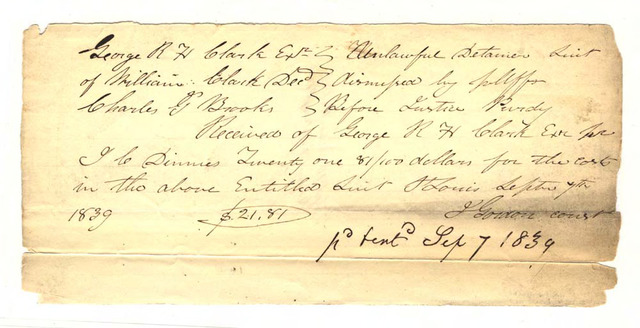 George R H Clark Exr } Unlawful Detainer Suit
of William Clark Decd } dismissed by pltffs
Charles G Brooks } Before Justice Purdy
Received of George R H Clark Exr pr
J C Dinnies Twenty one 81/100 dollars for the costs
in the above Entitled Suit St Louis Septr 7th
1839 $21.81 J Gordon const
pd Sep 7 1839